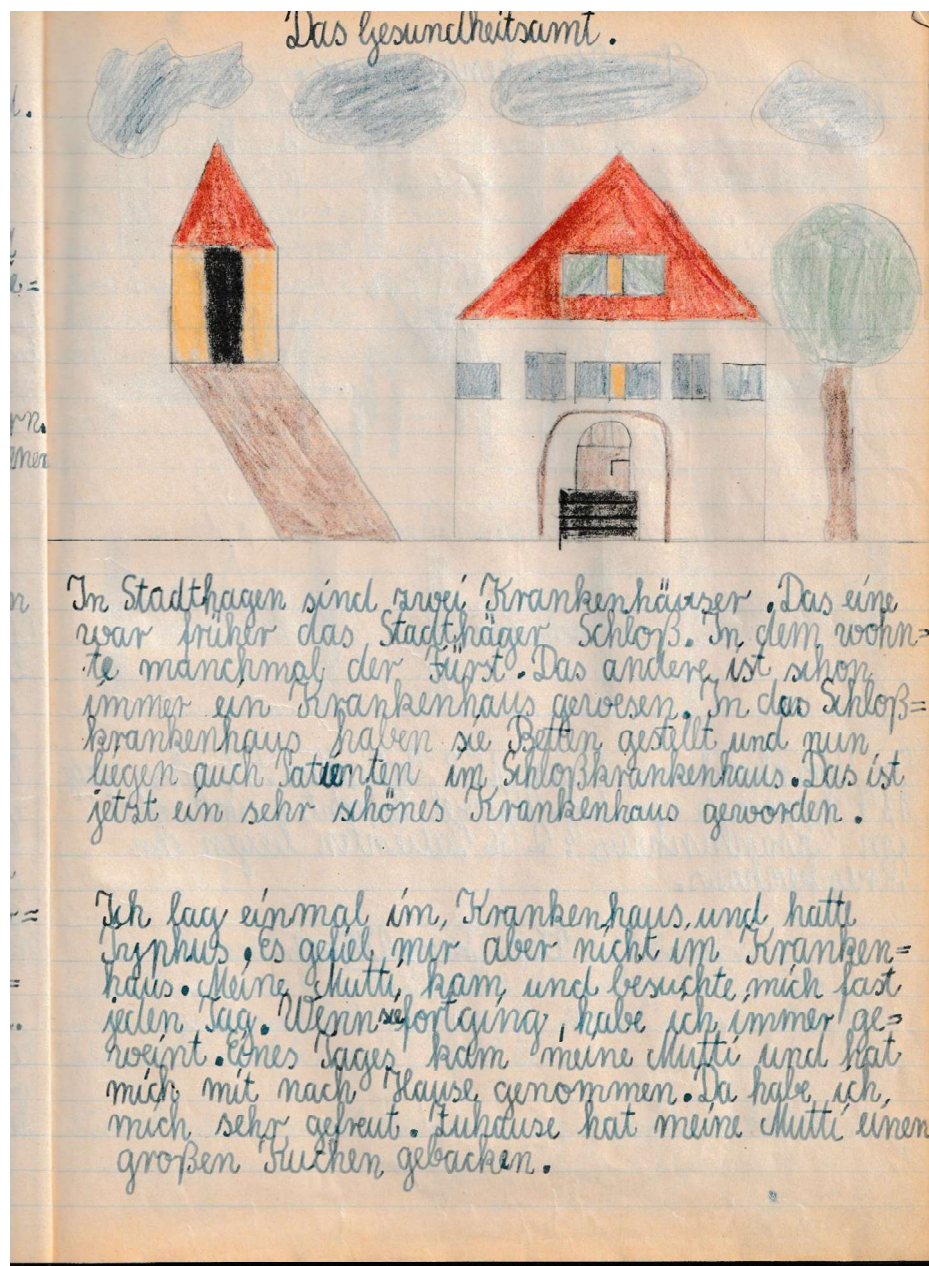 Das Gesundheitsamt.
In Stadthagen sind zwei Krankenhäuser. Das eine
war früher das Stadthäger Schloß. In dem wohn=
te manchmal der Fürst. Das andere ist schon
immer ein Krankenhaus gewesen. In das Schloß=
krankenhaus haben sie Betten gestellt und nun
liegen auch Patienten im Schloßkrankenhaus. Das ist
jetzt ein sehr schönes Krankenhaus geworden.
Ich lag einmal im Krankenhaus und hatte
Typhus. Es gefiel mir aber nicht im Kranken=
haus. Meine Mutti kam und besuchte mich fast
jeden Tag. Wenn sie fortging, habe ich immer ge=
weint. Eines Tages kam meine Mutti und hat
mich mit nach Hause genommen. Da habe ich
mich sehr gefreut. Zuhause hat meine Mutti einen
großen Kuchen gebacken.